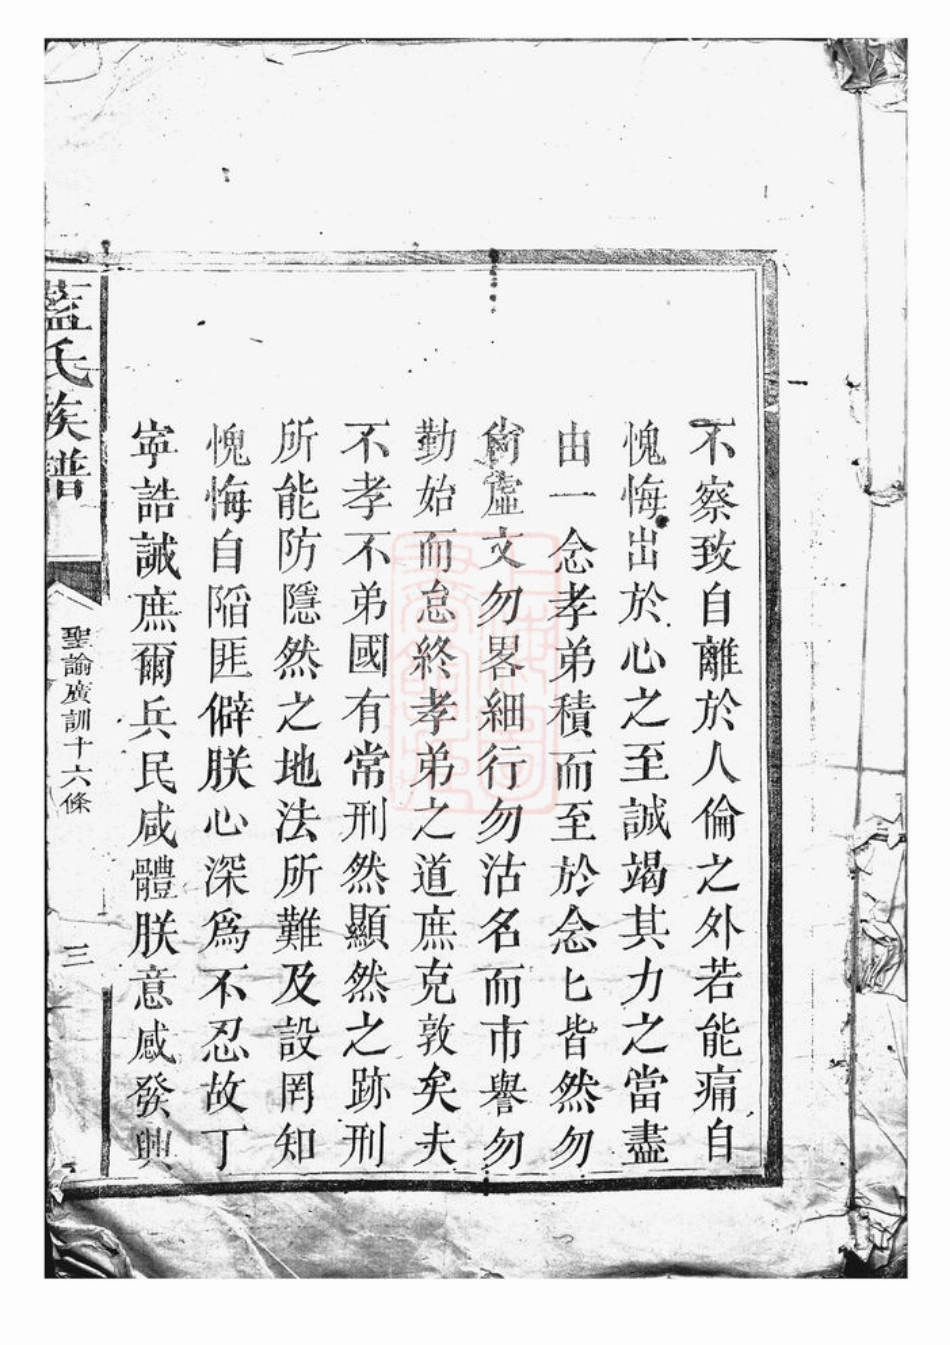 不察致自離於人倫之外若能痛自
愧悔出於心之至誠竭其力之當盡
由一念孝弟積而至於念匕皆然勿
尚虛文勿畧細行勿沽名而市譽勿
勤始而怠終孝弟之道庶克敦矣夫
不孝不弟國有常刑然顯然之跡刑
所能防隱然之地法所難及設罔知
愧悔自陷匪僻朕心深爲不忍故丁
寕誥誡庶爾兵民咸體朕意感發興
藍氏族譜
聖諭廣訓十六條
三